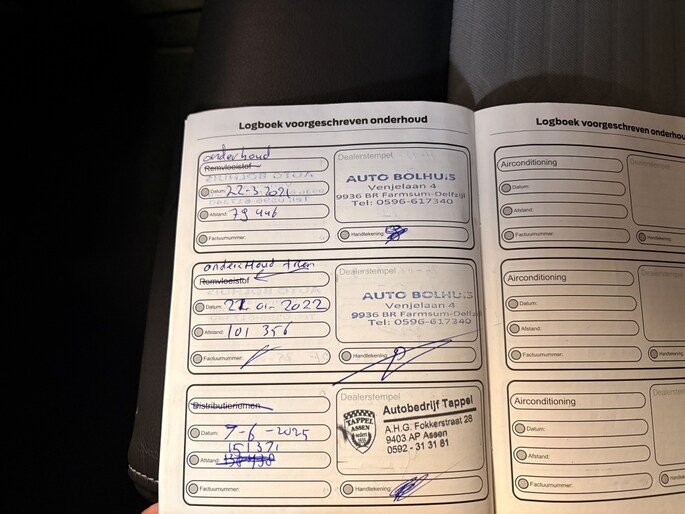 Logboek voorgeschreven onderhoud
onderhoud
Remvloeistof
Datum: 22-3-2021
Afstand: 79 446
Factuurnummer:
Dealerstempel
AUTO BOLHUIS
Venjelaan 4
9936 BR Farmsum-Delfzijl
Tel: 0596-617340
Handtekening:
onderhoud
Remvloeistof
Datum: 01-2022
Afstand: 101 356
Factuurnummer:
Dealerstempel
AUTO BOLHUIS
Venjelaan 4
9936 BR Farmsum-Delfzijl
Tel: 0596-617340
Handtekening:
Distributieriemen
Datum: 7-6-2025
151371
Afstand:
Factuurnummer:
Dealerstempel
TAPPEL
ASSEN
Autobedrijf Tappel
A.H.G. Fokkerstraat 28
9403 AP Assen
0592 - 31 31 81
Handtekening:
Logboek voorgeschreven onderhou
Airconditioning
Datum:
Afstand:
Factuurnummer:
Dealerstempel
Handtekening
Airconditioning
Datum:
Afstand:
Factuurnummer:
Dealerste
Handteken
Airconditioning
Datum:
Afstand:
Factuurnummer:
Dealerst